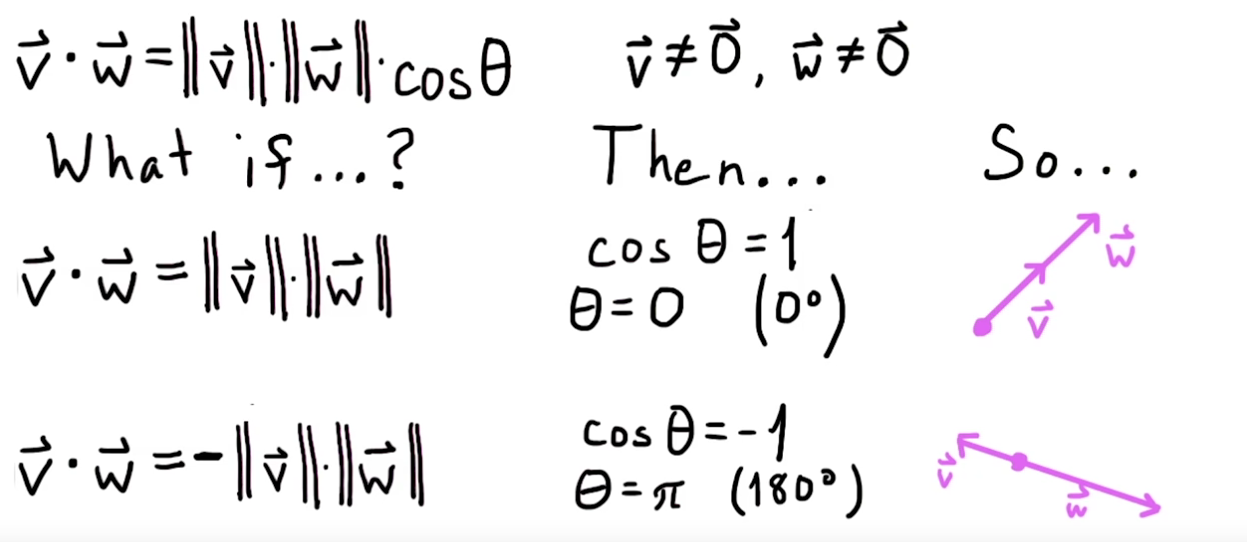 v⃗ · w⃗ = ‖v⃗‖·‖w⃗‖·cosθ v⃗ ≠ 0⃗, w⃗ ≠ 0⃗
What if...? Then... So...
v⃗ · w⃗ = ‖v⃗‖·‖w⃗‖ cos θ = 1
θ = 0 (0°)
w⃗
v⃗
v⃗ · w⃗ = -‖v⃗‖·‖w⃗‖ cos θ = -1
θ = π (180°)
v⃗
w⃗